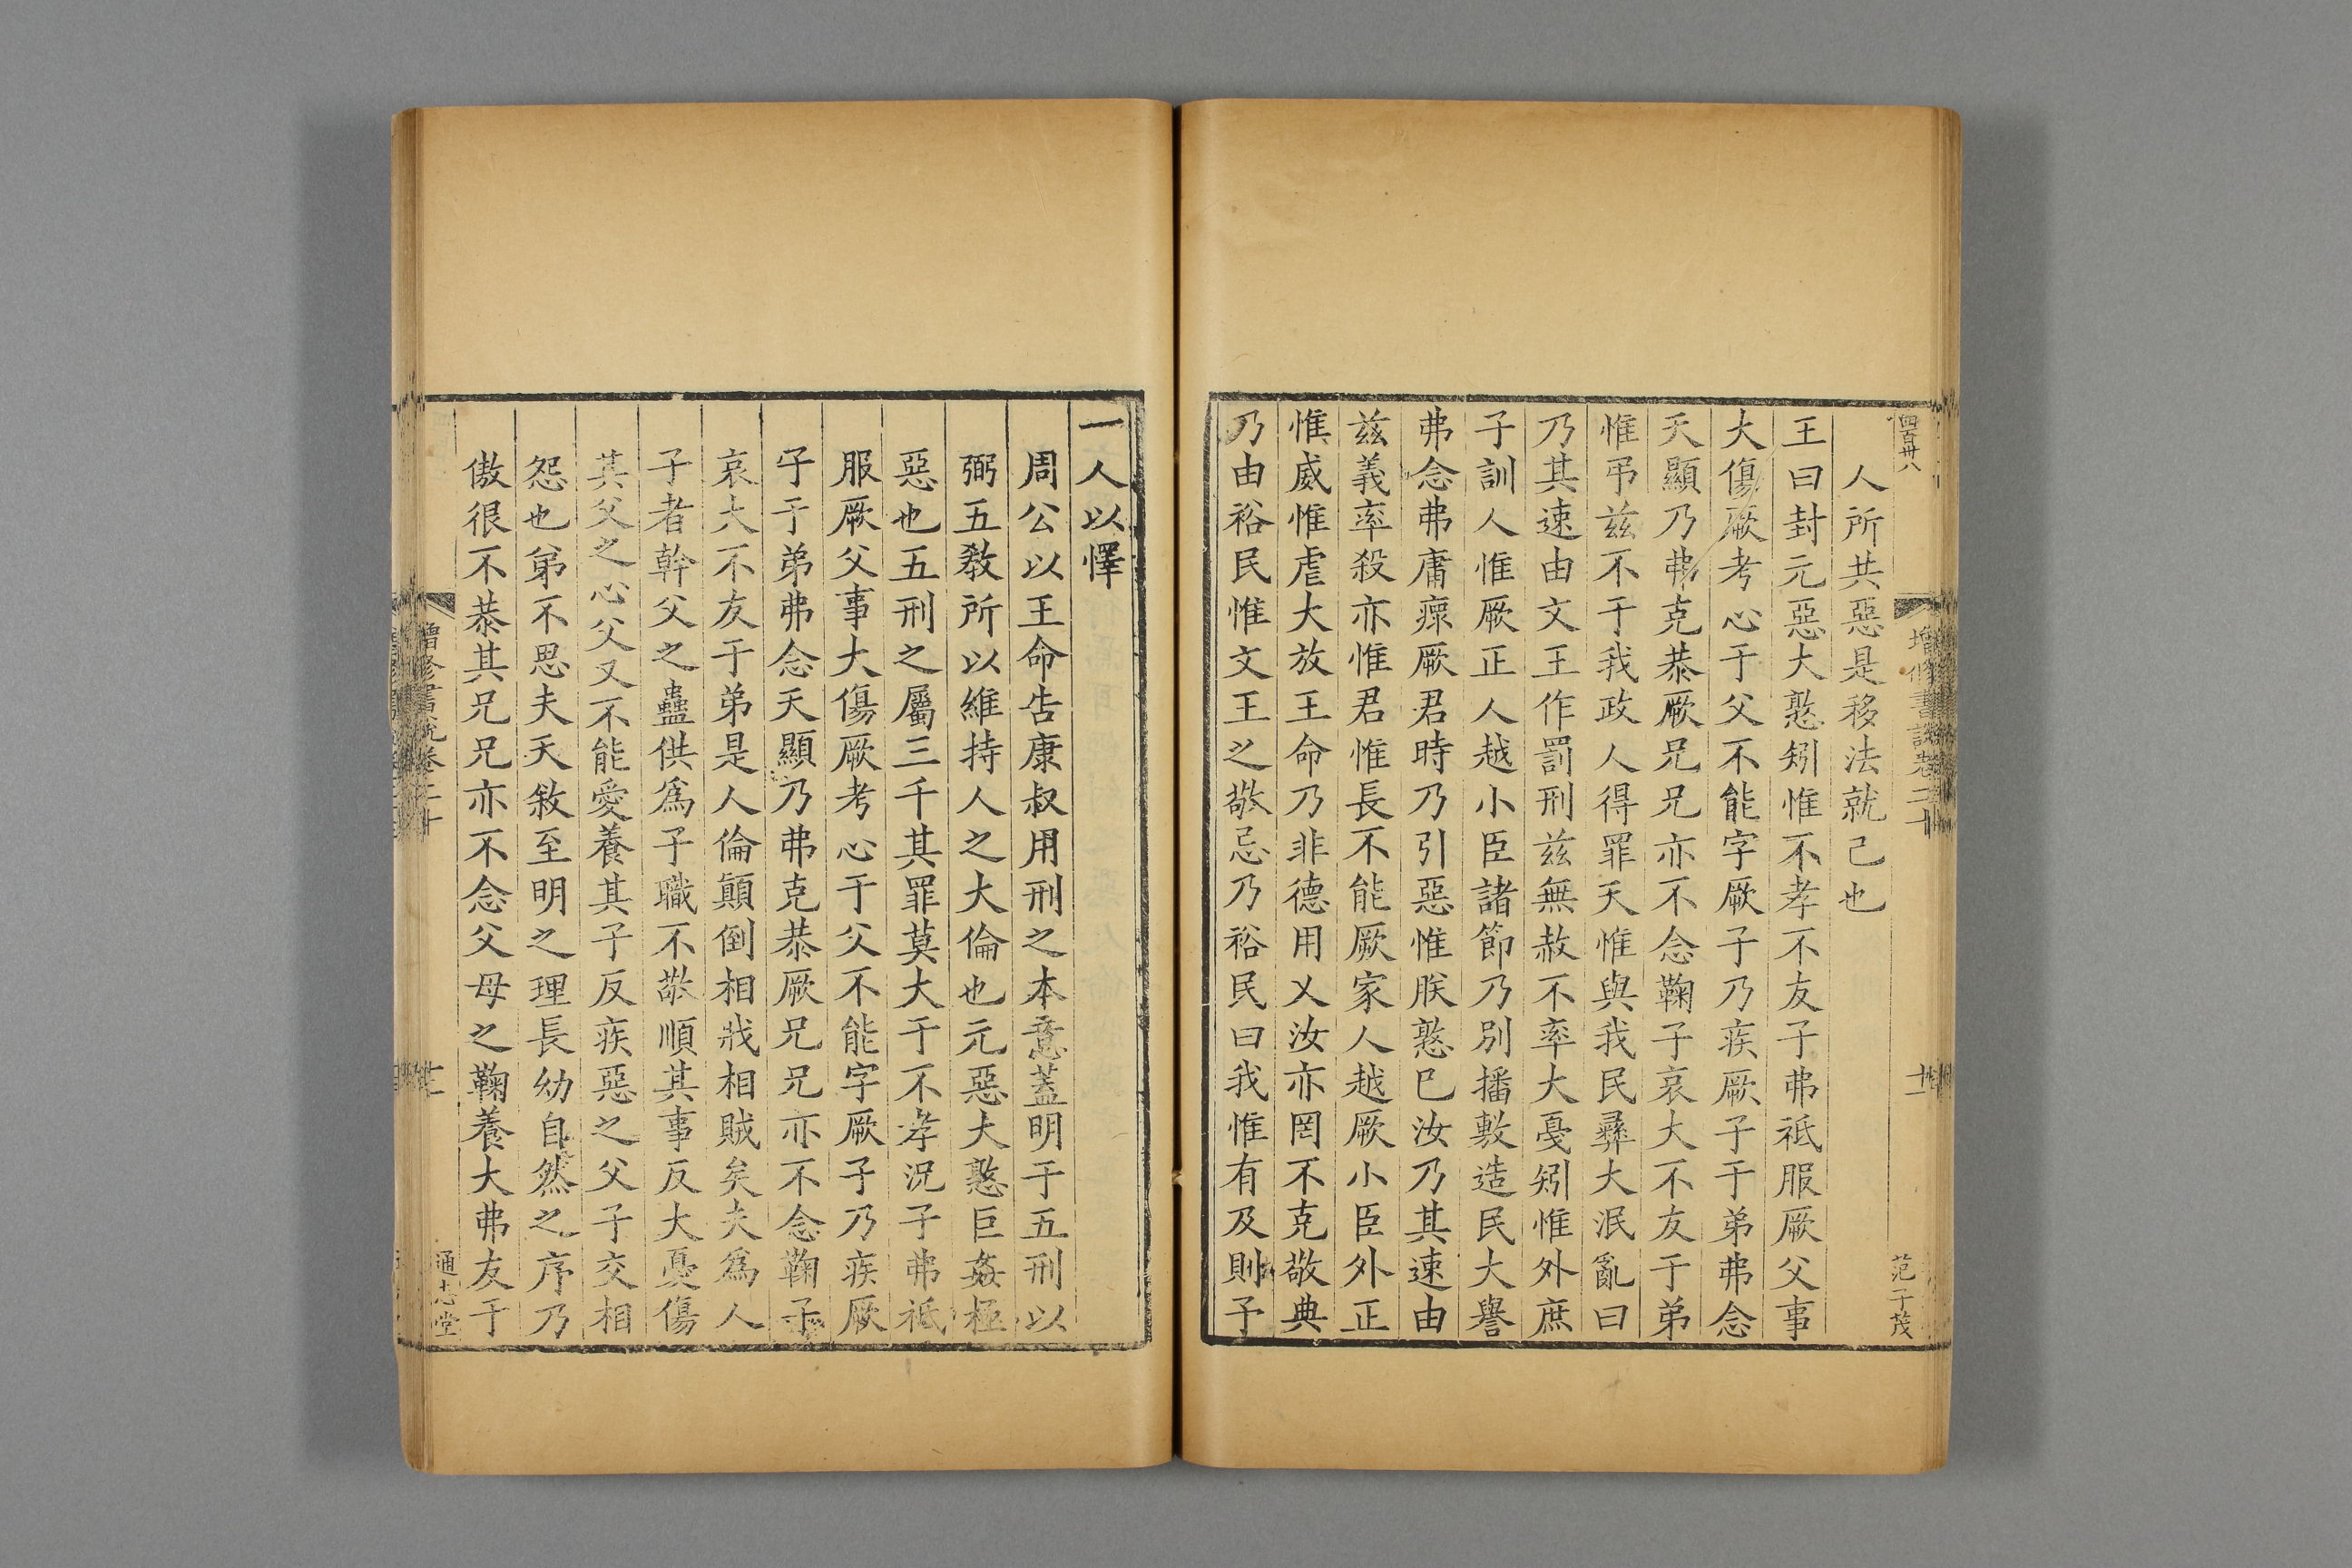 四百卅八
增修書說卷二十
十一
范子茂
人所共惡是移法就己也
王曰封元惡大憝矧惟不孝不友子弗祗服厥父事
大傷厥考心于父不能字厥子乃疾厥子于弟弗念
天顯乃弗克恭厥兄兄亦不念鞠子哀大不友于弟
惟弔茲不于我政人得罪天惟與我民彝大泯亂曰
乃其速由文王作罰刑茲無赦不率大戛矧惟外庶
子訓人惟厥正人越小臣諸節乃別播敷造民大譽
弗念弗庸瘝厥君時乃引惡惟朕憝巳汝乃其速由
茲義率殺亦惟君惟長不能厥家人越厥小臣外正
惟威惟虐大放王命乃非德用乂汝亦罔不克敬典
乃由裕民惟文王之敬忌乃裕民曰我惟有及則予
一人以懌
周公以王命告康叔用刑之本意蓋明于五刑以
弼五教所以維持人之大倫也元惡大憝巨姦極
惡也五刑之屬三千其罪莫大于不孝況子弗祗
服厥父事大傷厥考心于父不能字厥子乃疾厥
子于弟弗念天顯乃弗克恭厥兄兄亦不念鞠子
哀大不友于弟是人倫顛倒相戕相賊矣夫為人
子者幹父之蠱供為子職不敬順其事反大憂傷
其父之心父又不能愛養其子反疾惡之父子交相
怨也弟不思夫天敘至明之理長幼自然之序乃
傲很不恭其兄兄亦不念父母之鞠養大弗友于
增修書說卷二十
通志堂